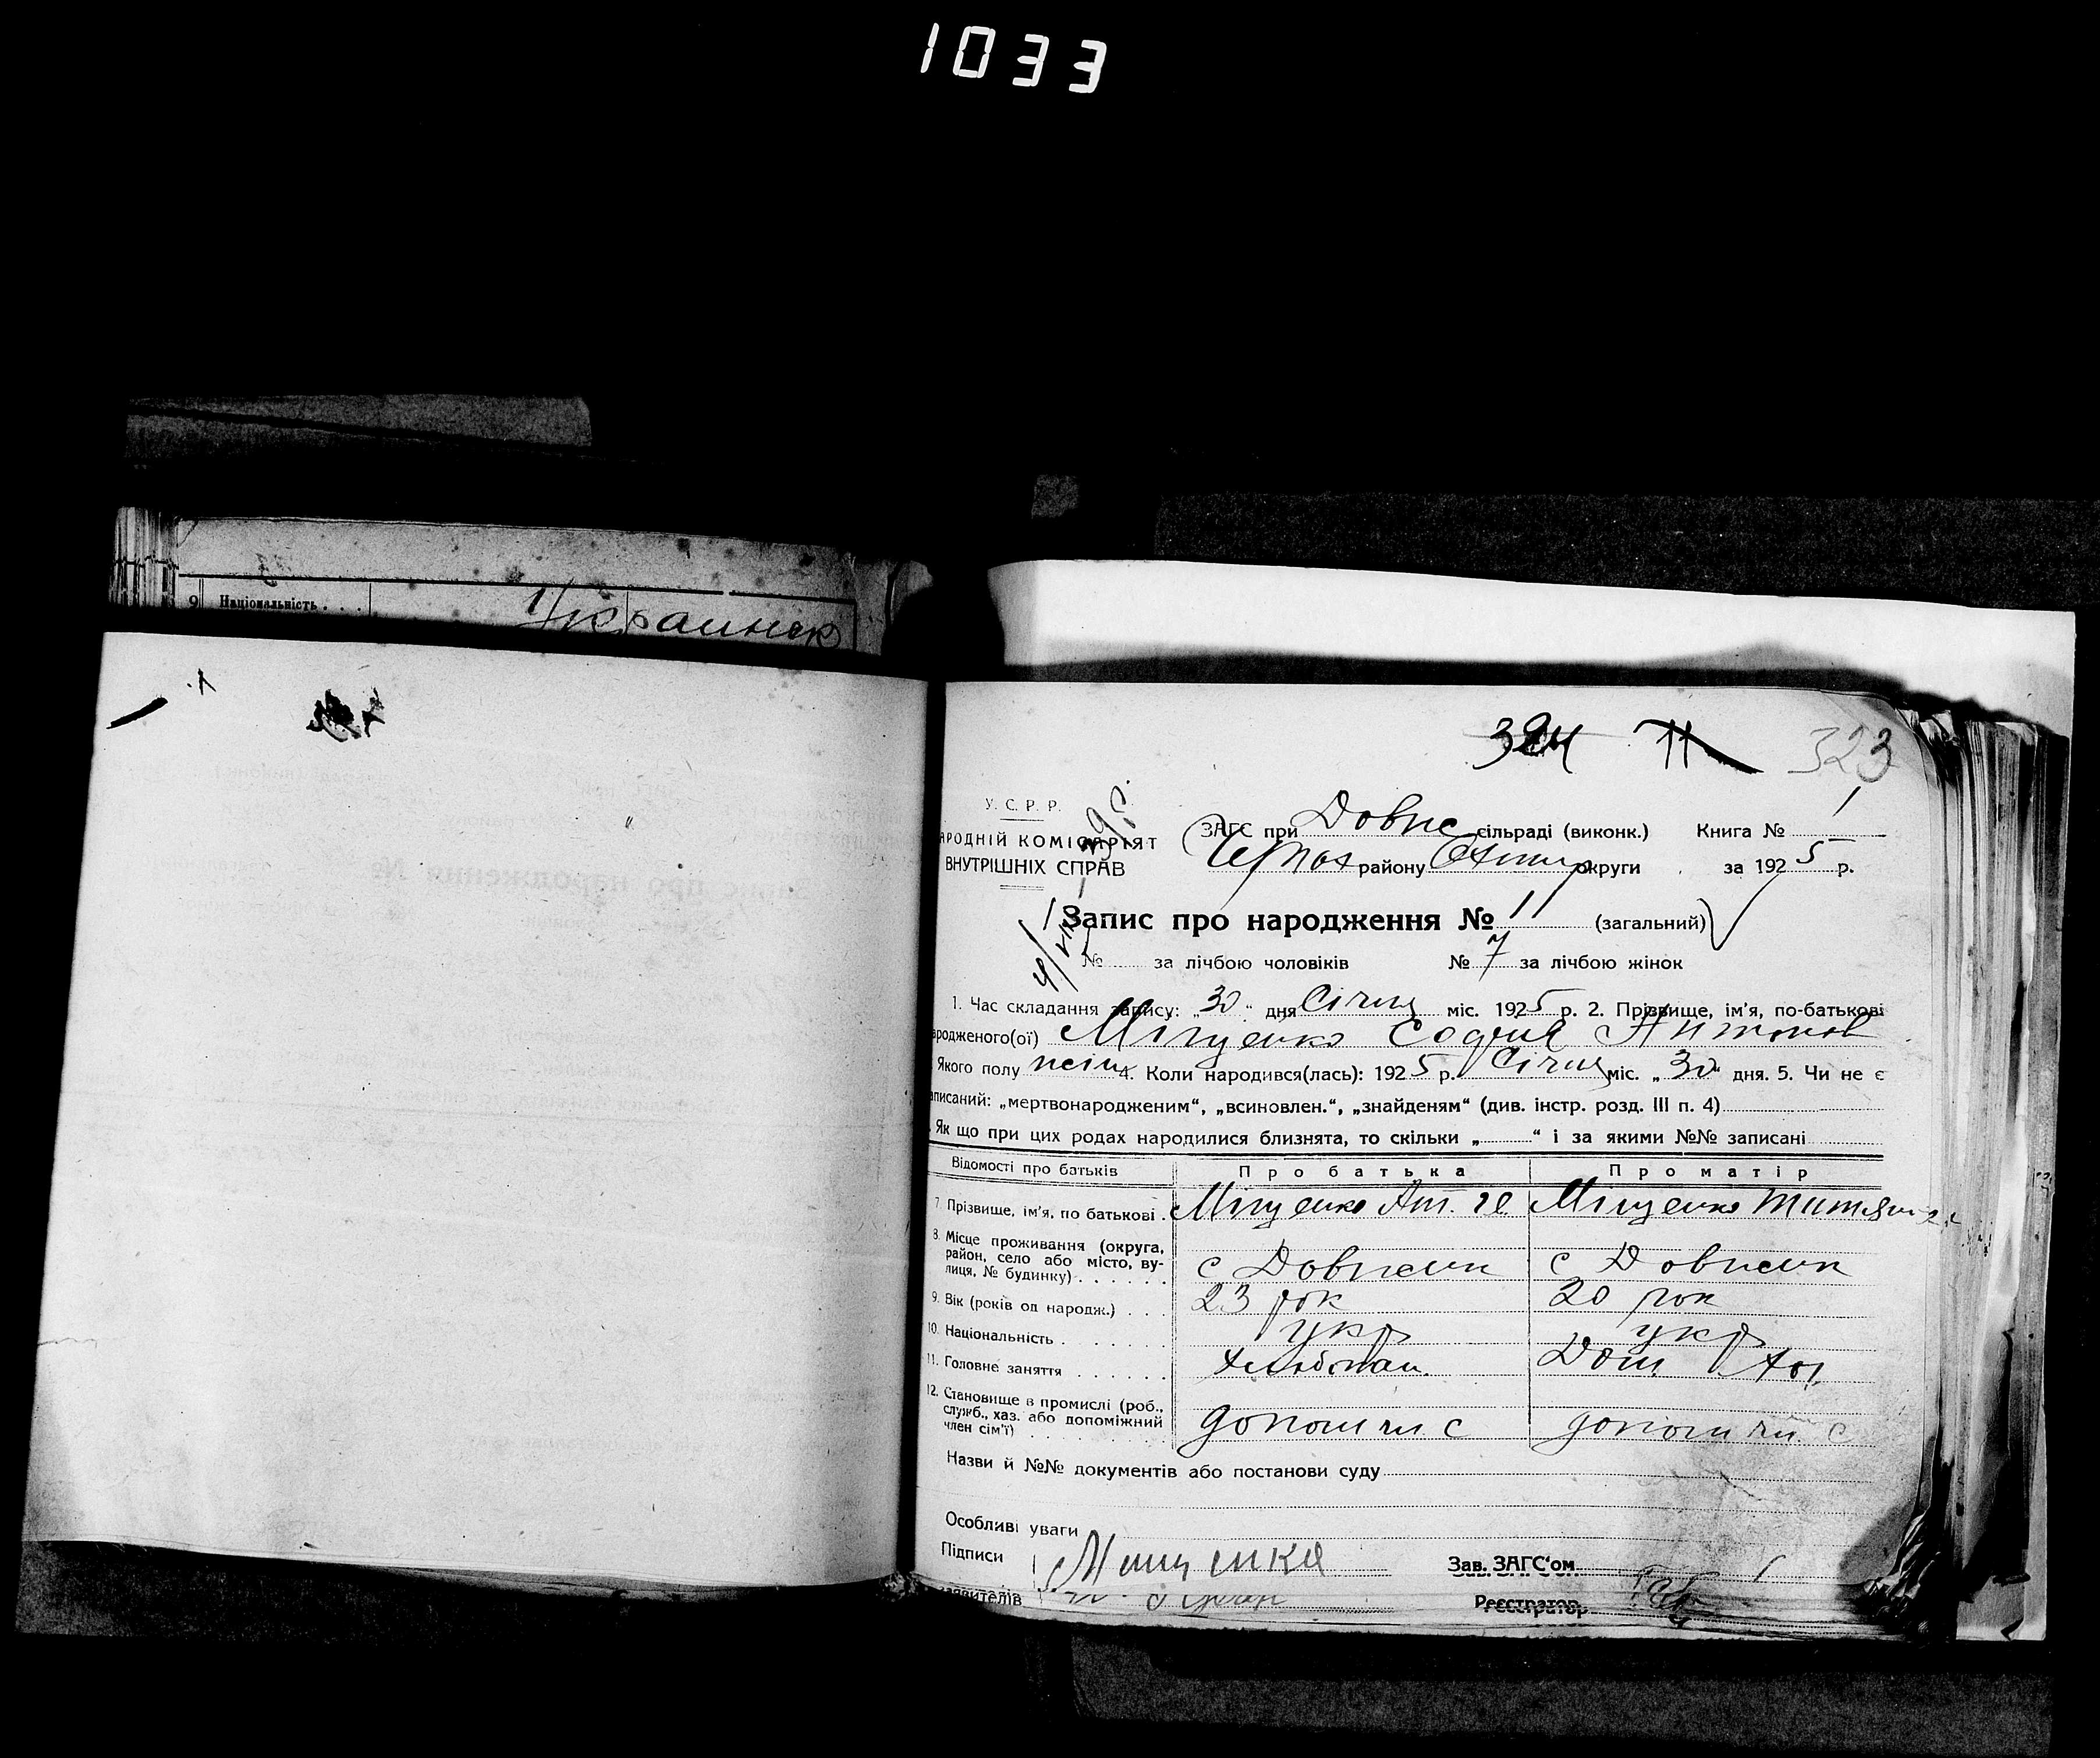 1033
9 Національність . . . Украинск
324 11 323
У. С. Р. Р.
АРОДНІЙ КОМІСАРІЯТ
ВНУТРІШНІХ СПРАВ
ЗАГС при Довже сільраді (виконк.) Книга № 1
району Охтир округи за 1925 р.
Запис про народження № 11 (загальний)
№ за лічбою чоловіків № 7 за лічбою жінок
1. Час складання запису: „30“ дня Січня міс. 1925 р. 2. Прізвище, ім'я, по-батькові
родженого(ої) Міщенко София Антонов
Якого полу жіноч 4. Коли народився(лась): 1925 р. Січня міс. „30“ дня. 5. Чи не є
аписаний: „мертвонародженим“, „всиновлен.“, „знайденям“ (див. інстр. розд. III п. 4)
Як що при цих родах народилися близнята, то скільки „ “ і за якими №№ записані
Відомості про батьків Про батька Про матір
7. Прізвище, ім'я, по батькові . Міщенко Ант. Міщенко
8. Місце проживання (округа, район, село або місто, вулиця, № будинку) . . . . . . с с
9. Вік (років од народж.) . . . 23 рок 20 рок
10. Національність . . . . . . укр укр
11. Головне заняття . . . . . . Дом.
12. Становище в промислі (роб., служб., хаз. або допоміжний член сім'ї) . . . . . . . допом чл с допом чл. с
Назви й №№ документів або постанови суду
Особливі уваги
Підписи Зав. ЗАГС'ом
заявителів Реєстратор